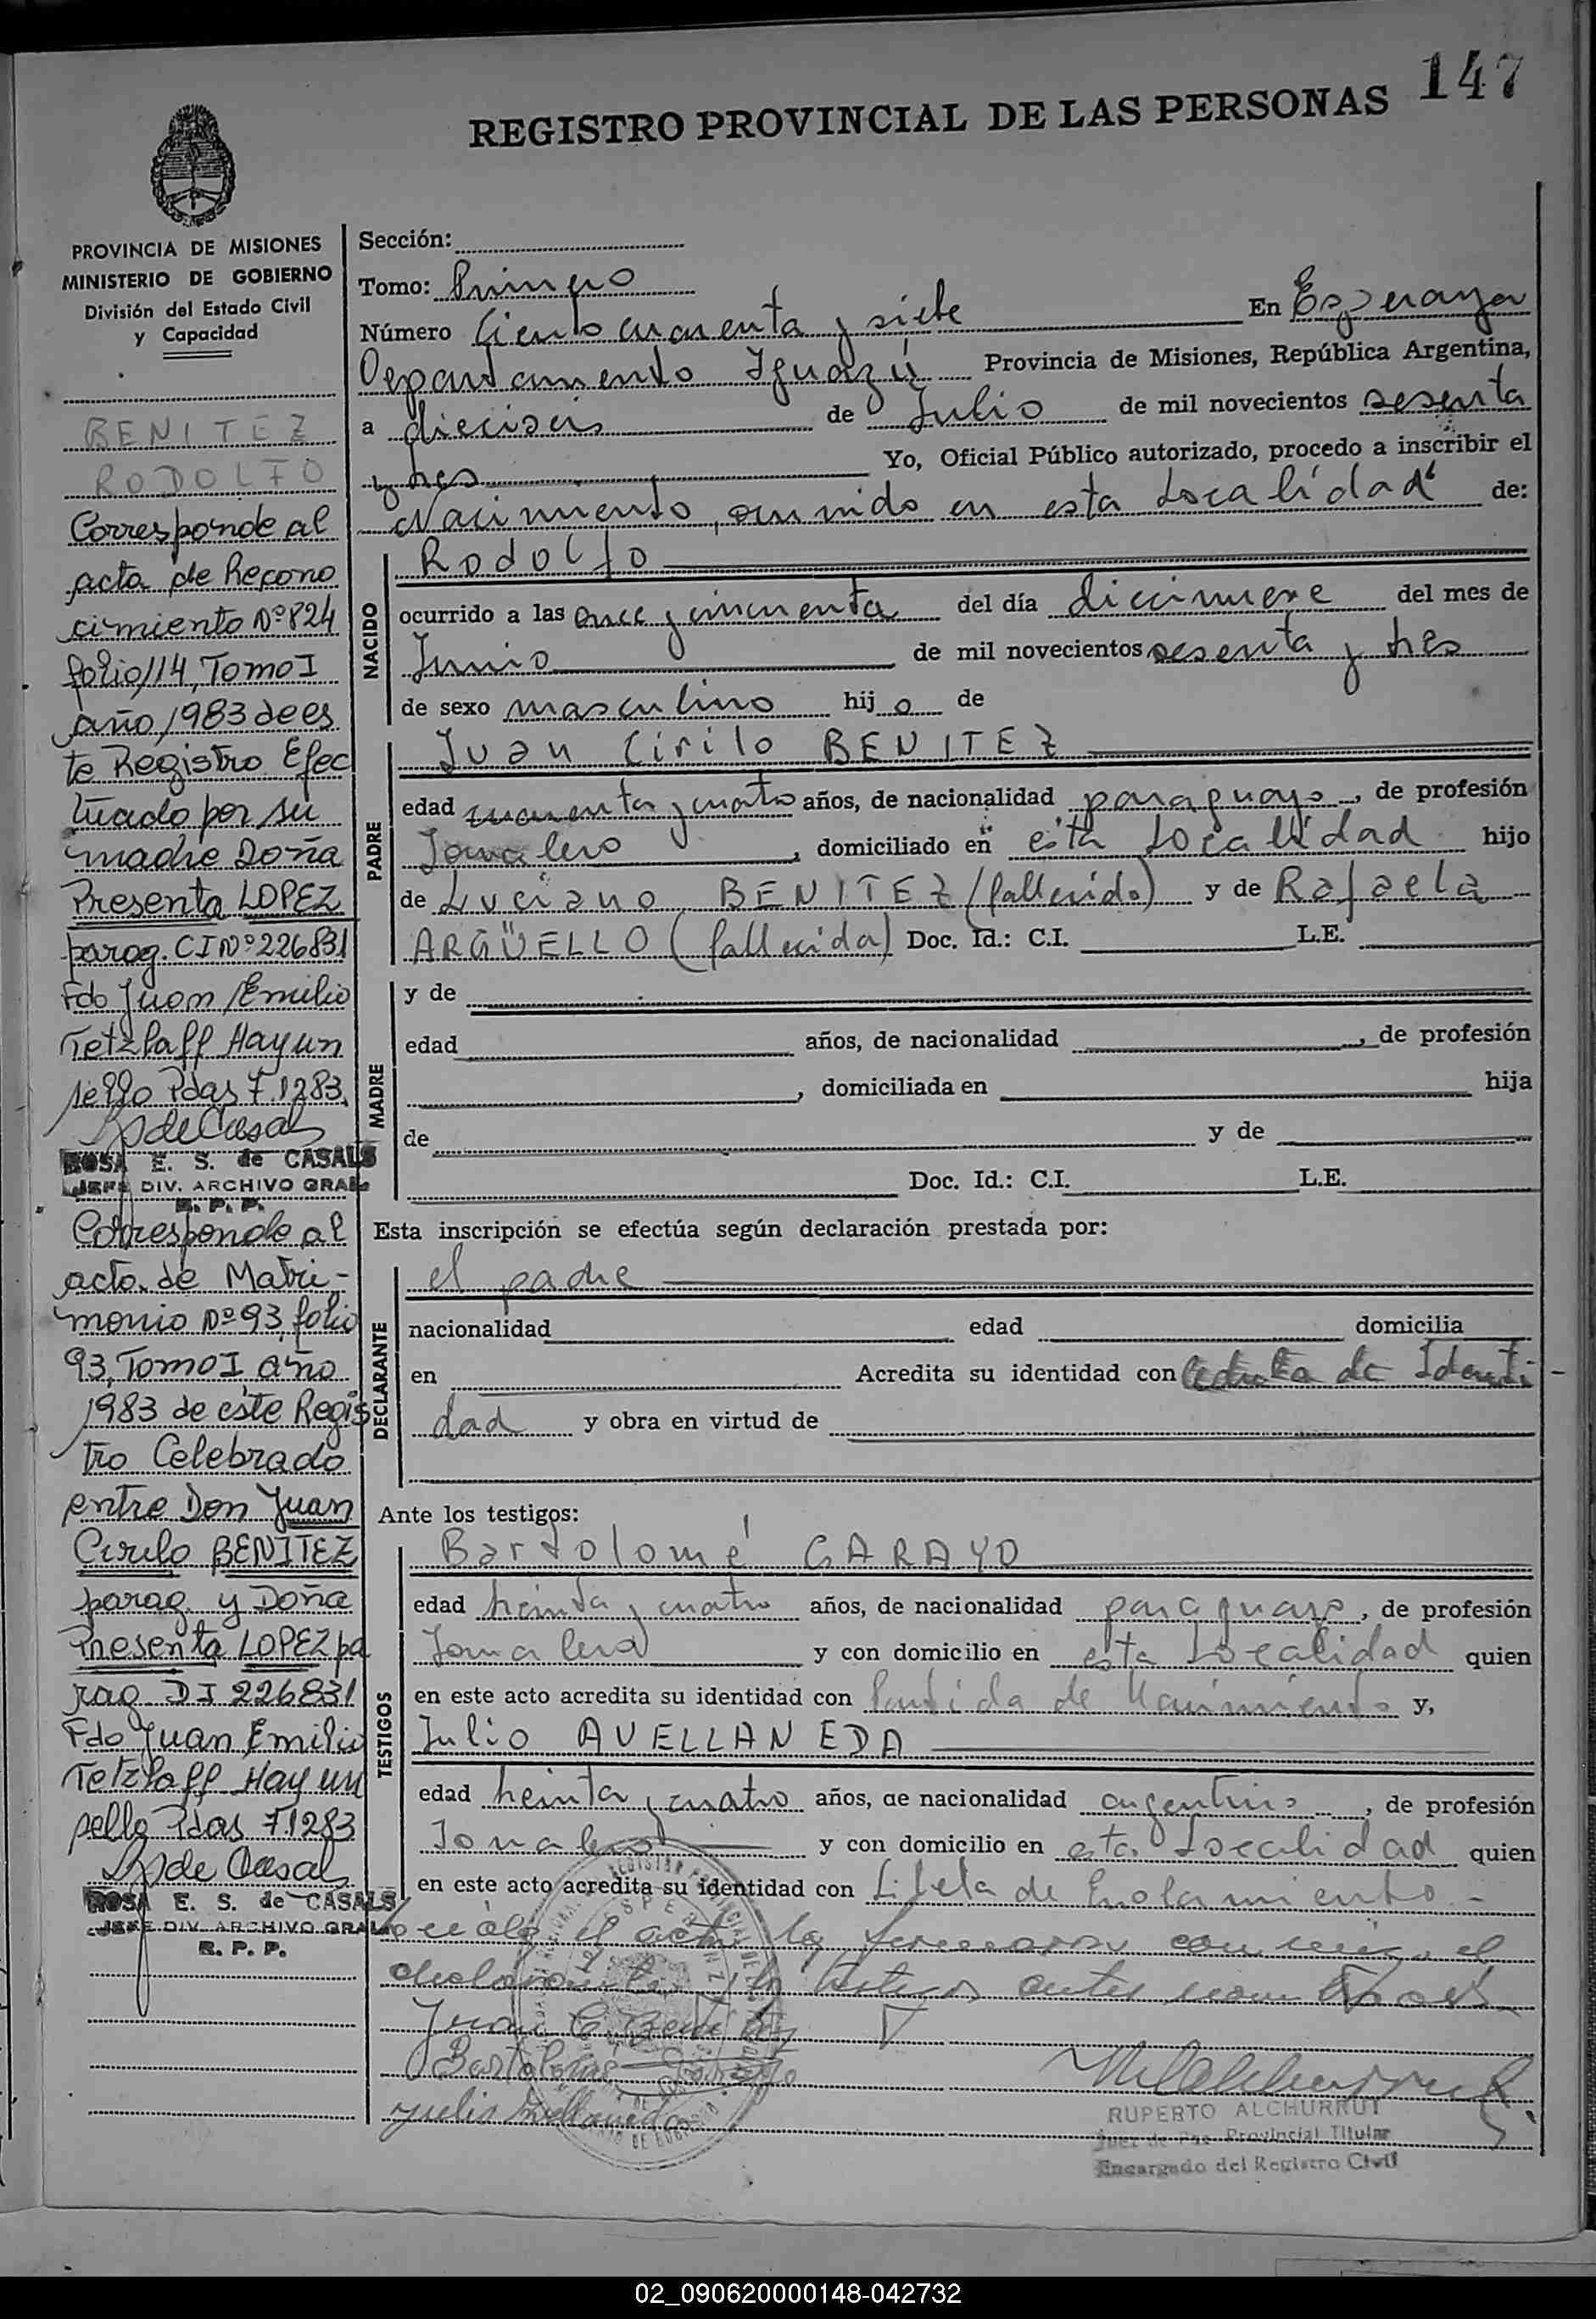 147
REGISTRO PROVINCIAL DE LAS PERSONAS
PROVINCIA DE MISIONES
MINISTERIO DE GOBIERNO
División del Estado Civil
y Capacidad
BENITEZ
RODOLFO
Corresponde al
acta de Recono
cimiento Nº 824
folio 114, Tomo I
año 1983 de es
te Registro Efec
tuado por su
madre Doña
Presenta LOPEZ
parag. CI Nº 226831
Fdo Juan Emilio
Tetzlaff Hay un
sello Pdas 7.12.83.
ROSA E. S. de CASALS
JEFE DIV. ARCHIVO GRAL.
R. P. P.
Corresponde al
acta de Matri-
monio Nº 93, folio
93, Tomo I año
1983 de este Regis
tro Celebrado
entre Don Juan
Cirilo BENITEZ
parag. y Doña
Presenta LOPEZ pa
rag DI 226831
Fdo Juan Emilio
Tetzlaff Hay un
sello Pdas 71283
ROSA E. S. de CASALS
JEFE DIV. ARCHIVO GRAL.
R. P. P.
Sección:
Tomo: Primero
Número Ciento cuarenta y siete En Esperanza
Departamento Iguazú Provincia de Misiones, República Argentina,
a dieciseis de Julio de mil novecientos sesenta
y tres Yo, Oficial Público autorizado, procedo a inscribir el
Nacimiento, ocurrido en esta Localidad de:
NACIDO
Rodolfo
ocurrido a las once y cincuenta del día diecinueve del mes de
Junio de mil novecientos sesenta y tres
de sexo masculino hijo de
PADRE
Juan Cirilo BENITEZ
edad cuarenta y cuatro años, de nacionalidad paraguayo, de profesión
Jornalero, domiciliado en esta Localidad hijo
de Luciano BENITEZ (fallecido) y de Rafaela
ARGÜELLO (fallecida) Doc. Id.: C.I. L.E.
MADRE
y de
edad años, de nacionalidad , de profesión
, domiciliada en hija
de y de
Doc. Id.: C.I. L.E.
Esta inscripción se efectúa según declaración prestada por:
DECLARANTE
el padre
nacionalidad edad domicilia
en Acredita su identidad con Cedula de Identi-
dad y obra en virtud de
Ante los testigos:
TESTIGOS
Bartolomé GARAYO
edad treinta y cuatro años, de nacionalidad paraguayo, de profesión
Jornalero y con domicilio en esta Localidad quien
en este acto acredita su identidad con Partida de Nacimiento y,
Julio AVELLANEDA
edad treinta y cuatro años, de nacionalidad argentino, de profesión
Jornalero y con domicilio en esta Localidad quien
en este acto acredita su identidad con Libreta de Enrolamiento -
el acta la firmaron conmigo el
declarante y los testigos antes nombrados
Juan C. Benitez
Bartolomé Garayo
Julio Avellaneda
RUPERTO ALCHURRUT
Juez de Paz Provincial Titular
Encargado del Registro Civil
02_090620000148-042732